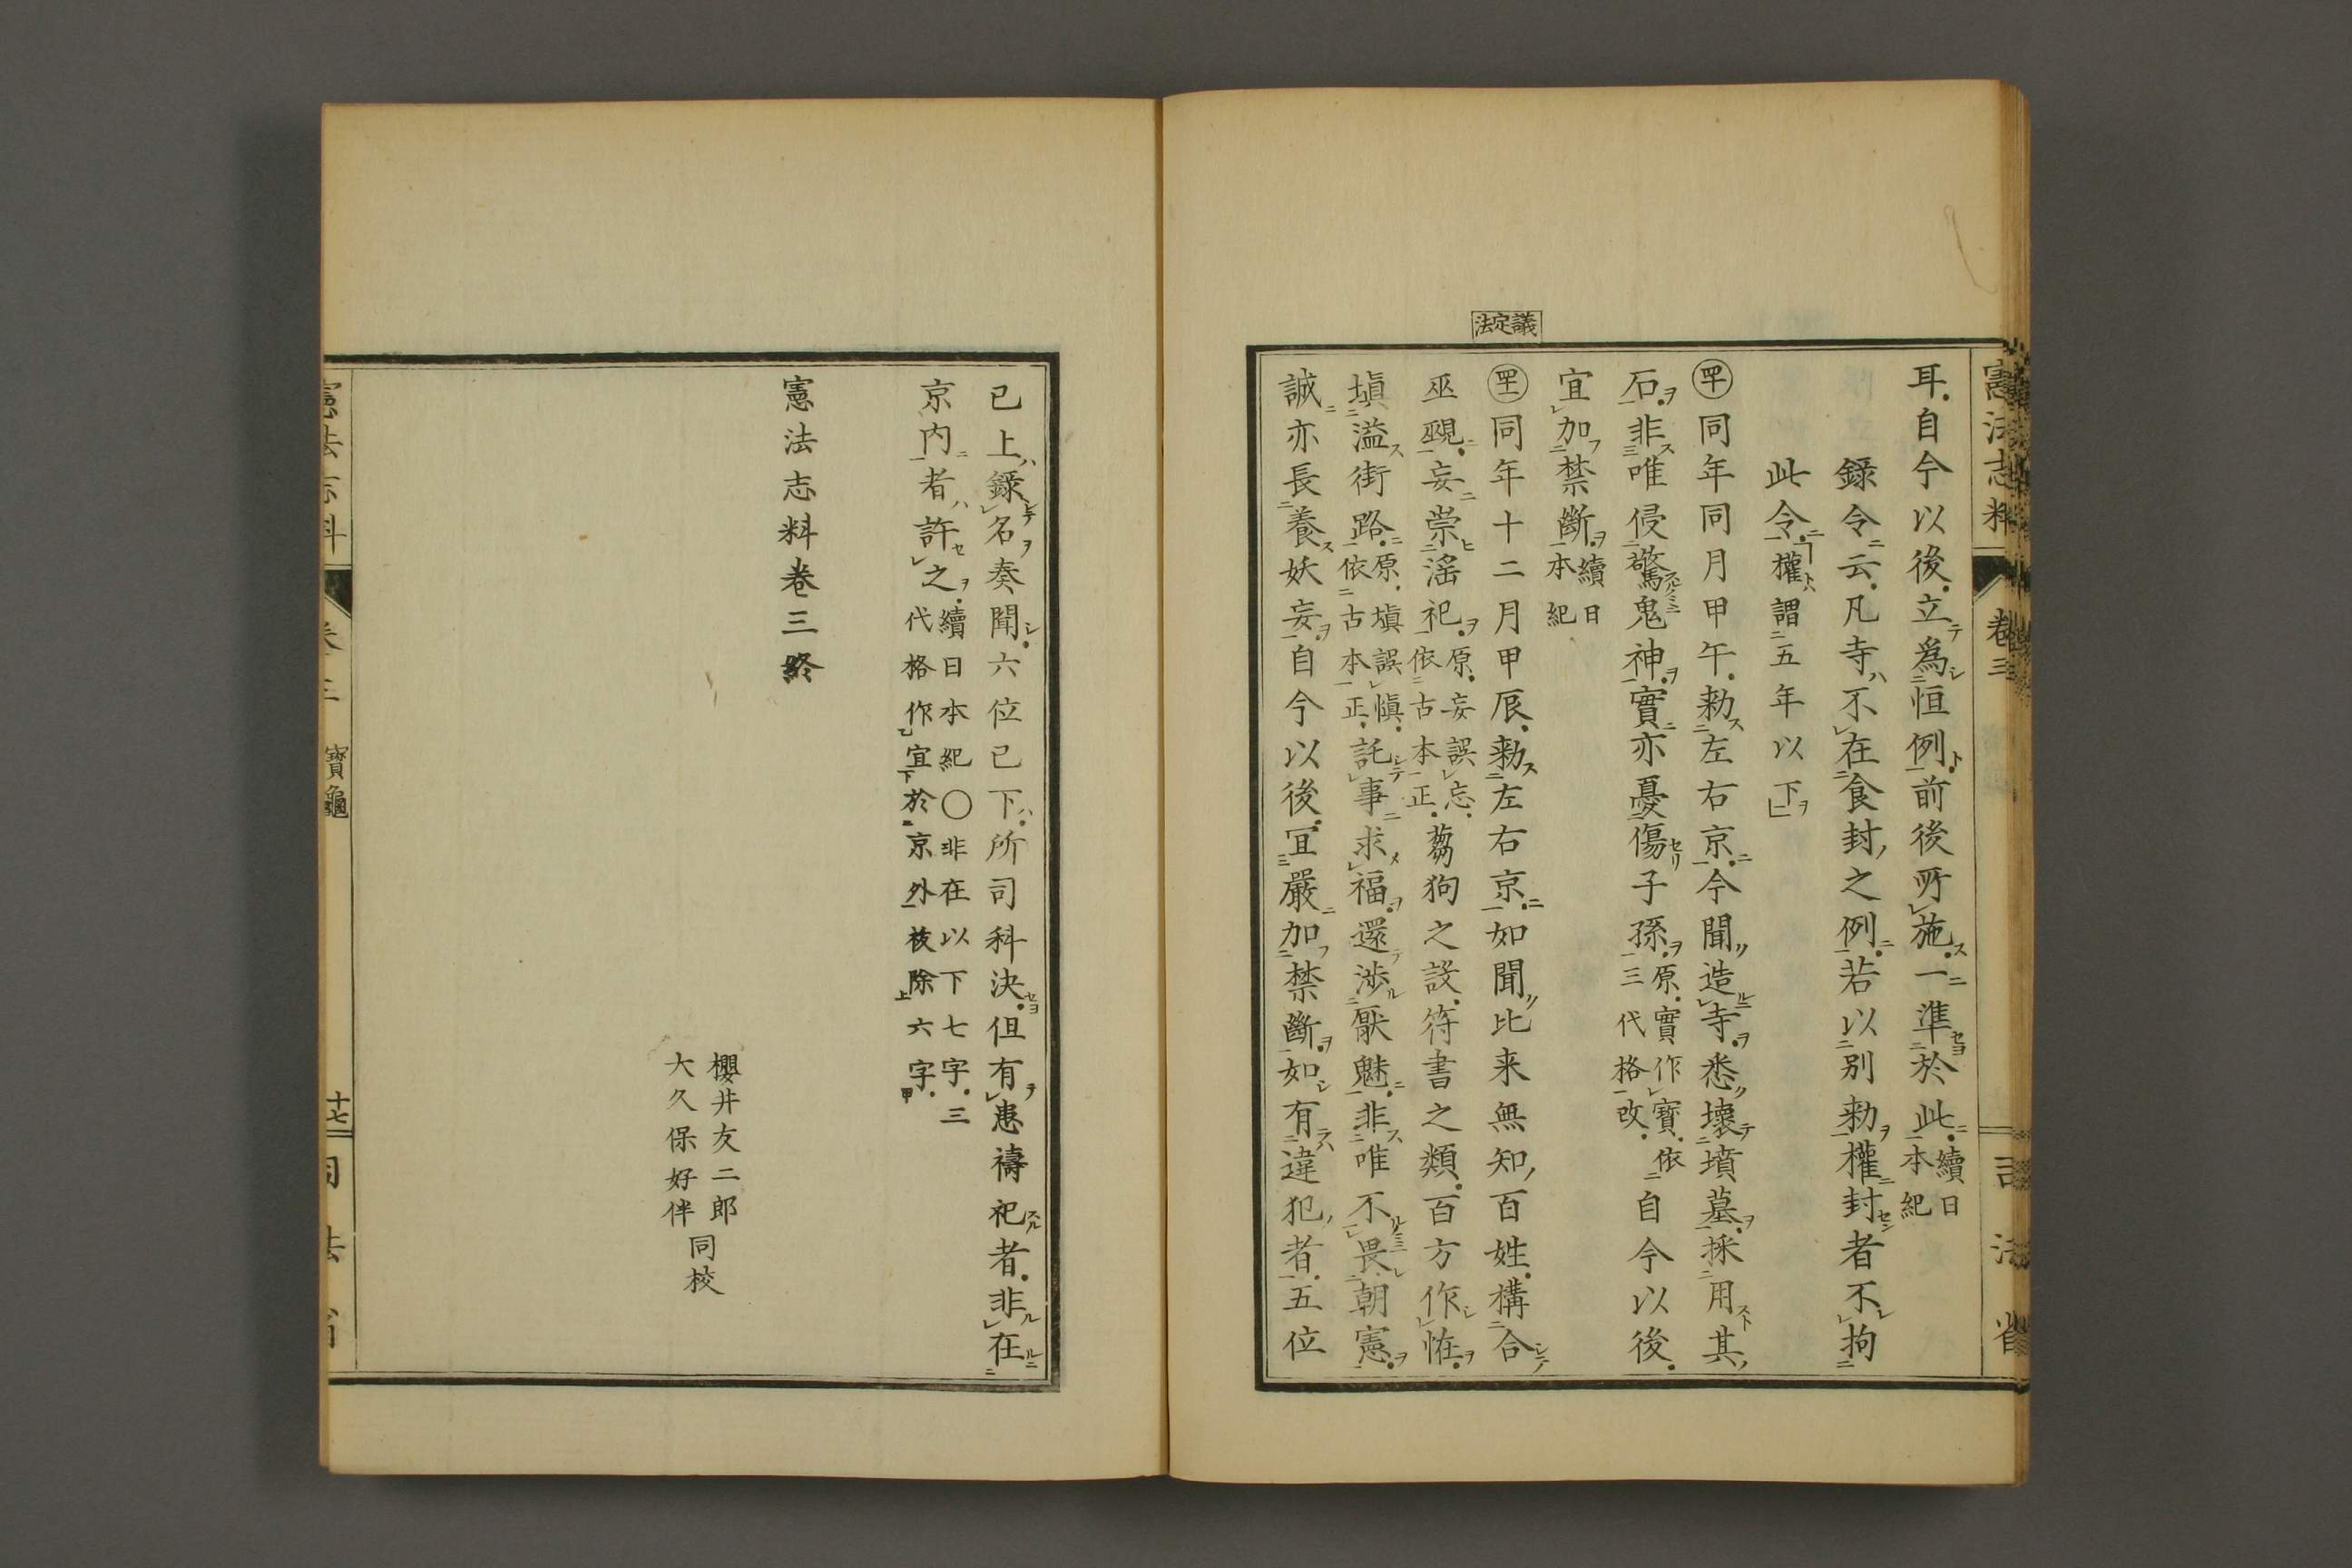 憲法志料
卷三
司法省
議定法
耳自今以後立爲恒例前後所施一準於此續日本紀
錄令云凡寺不在食封之例若以別勅權封者不拘
此令權謂五年以下
㊵同年同月甲午勅左右京今聞造寺悉壞墳墓採用其
石非唯侵驚鬼神實亦憂傷子孫原實作寶依三代格改自今以後
宜加禁斷續日本紀
㊶同年十二月甲辰勅左右京如聞比来無知百姓構合
巫覡妄崇滛祀原妄誤忘依古本正蒭狗之設符書之類百方作恠
塡溢街路原塡誤愼依古本正託事求福還涉厭魅非唯不畏朝憲
誠亦長養妖妄自今以後宜嚴加禁斷如有違犯者五位
已上錄名奏聞六位已下所司科決但有患禱祀者非在
京内者許之續日本紀〇非在以下七字三代格作宜於京外祓除六字
憲法志料卷三終
櫻井友二郎
大久保好伴
同校
憲法志料
卷三
寶龜
十七
司法省